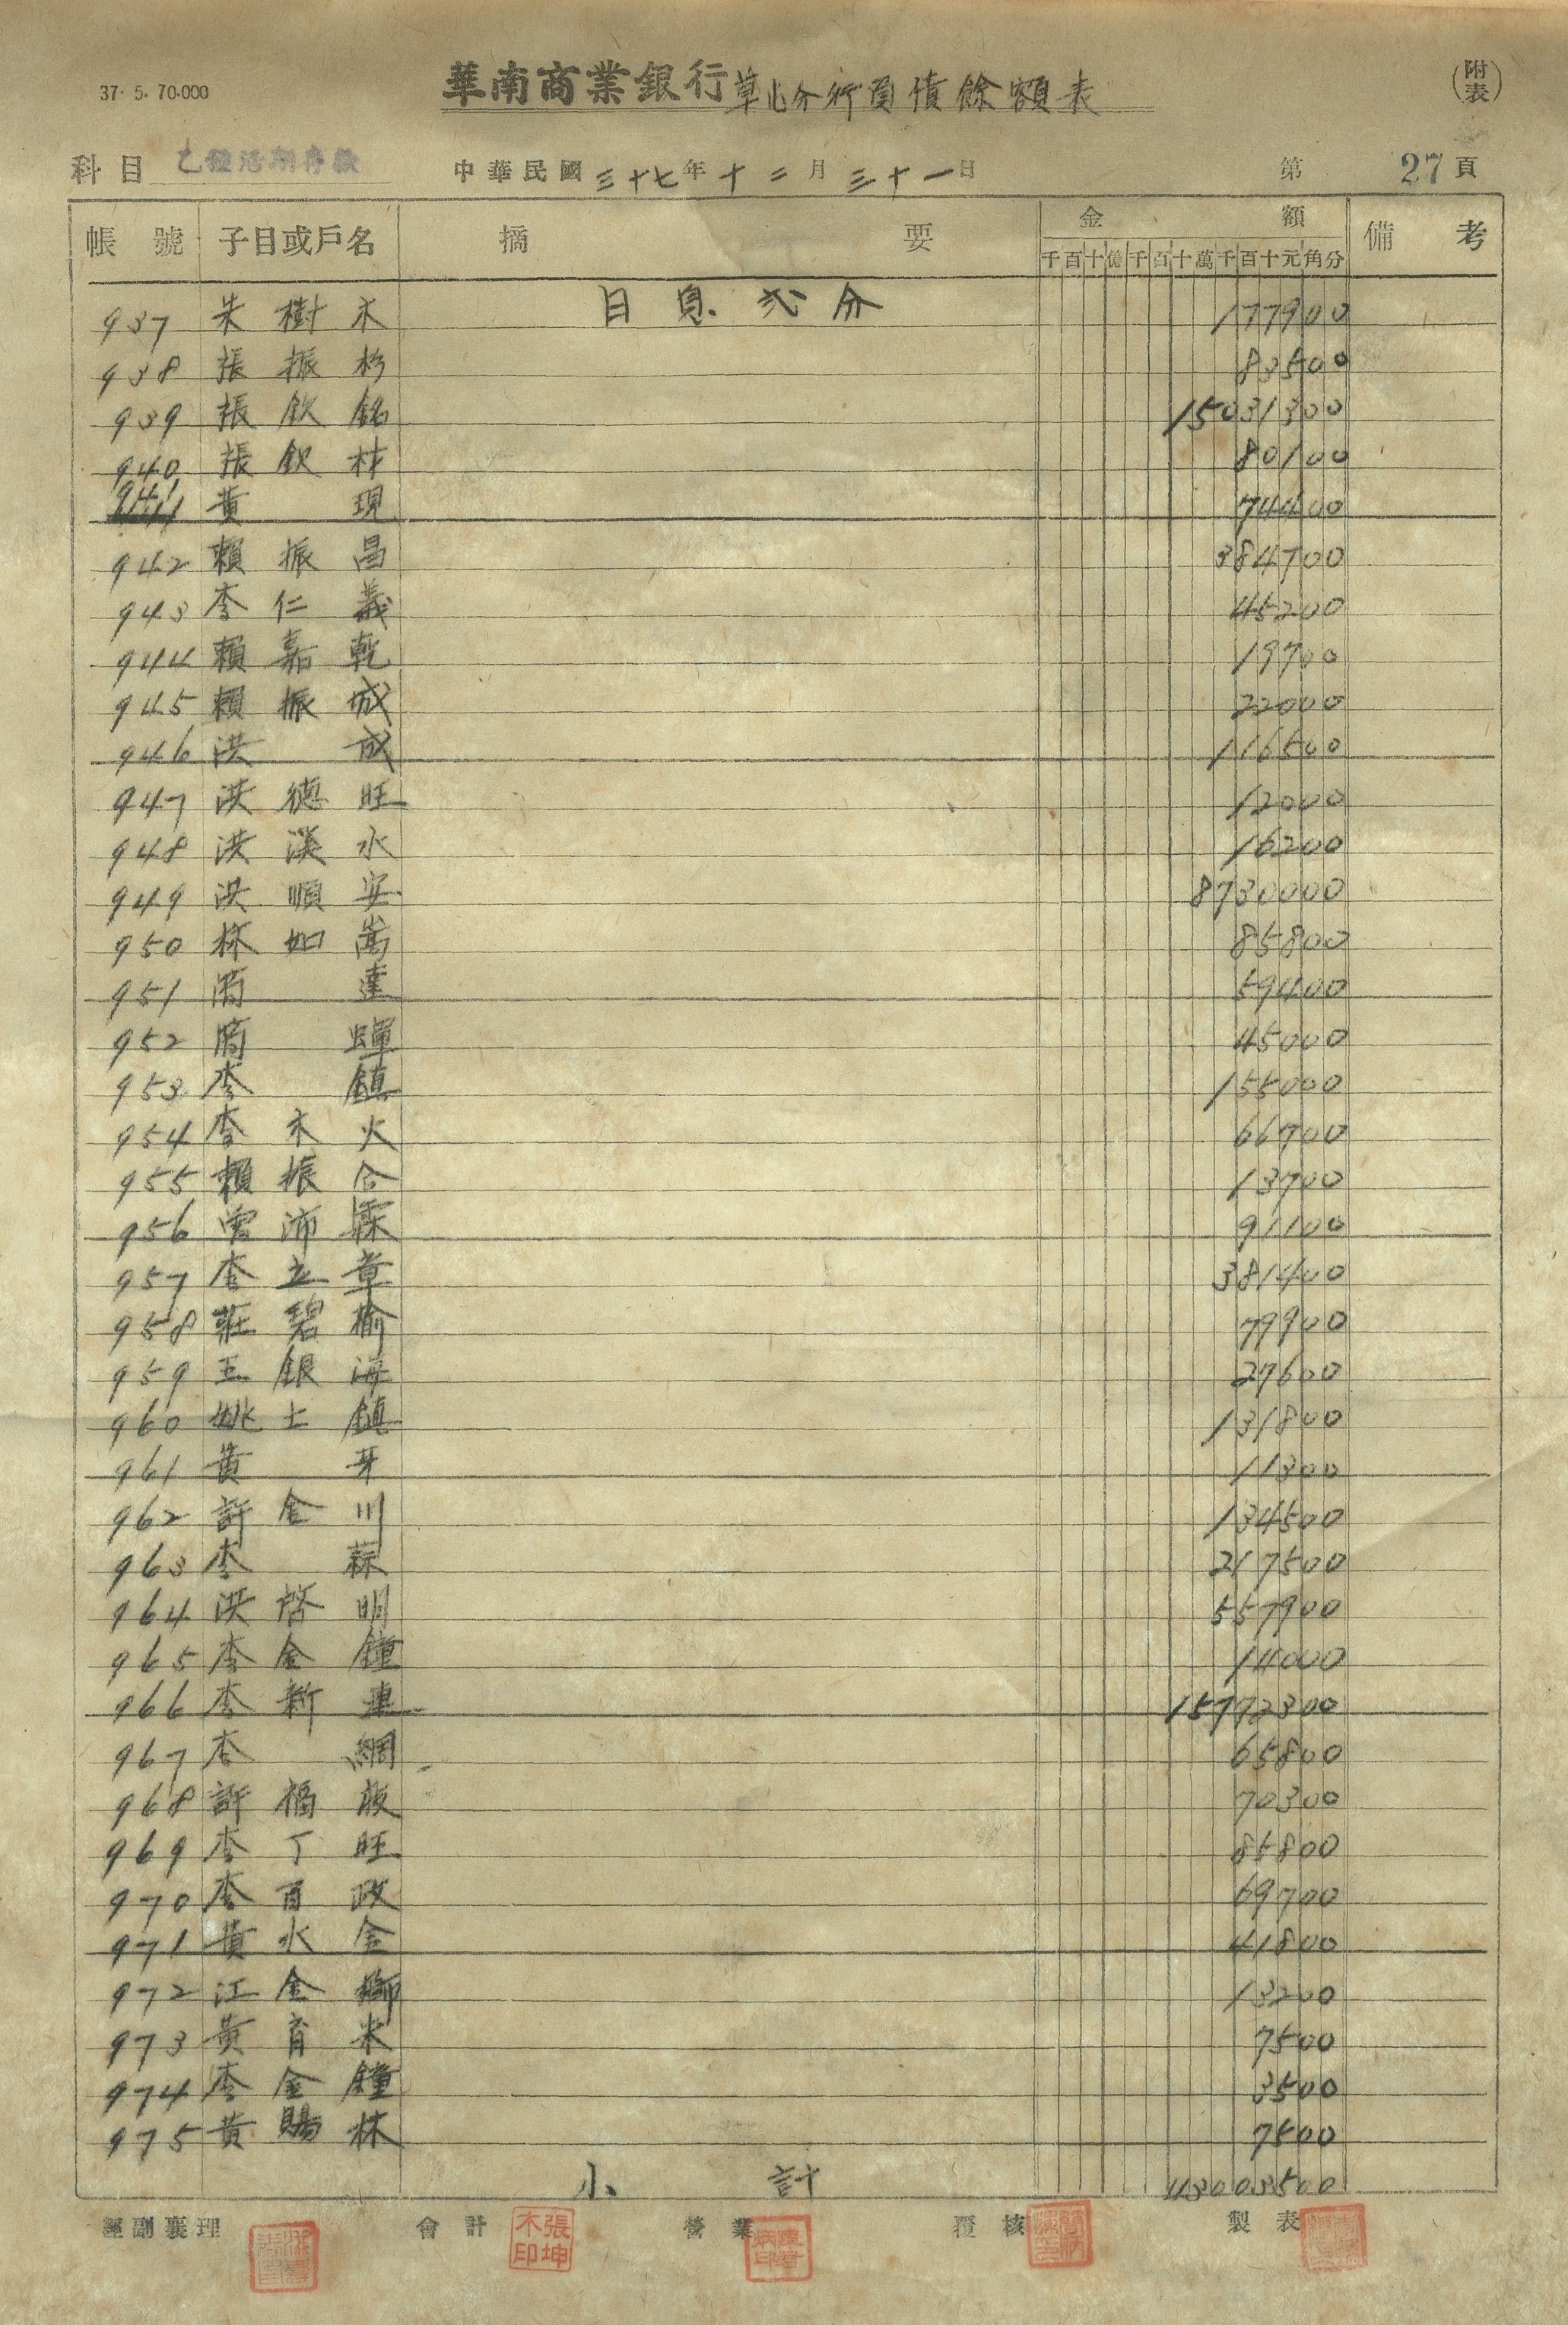 37. 5. 70.000
華南商業銀行草屯分行負債餘額表
(附表)
科目 乙種活期存款 中華民國三十七年十二月三十一日 第27頁
帳號 子目或戶名 摘要 金額 備考
千百十億千百十萬千百十元角分
937 朱樹木 日息弍分 177900
938 張振杉 83500
939 張欽銘 15031300
940 張欽材 80100
941 黃現 74400
942 賴振昌 384700
943 李仁義 45200
944 賴嘉乾 19700
945 賴振城 22000
946 洪成 116500
947 洪德旺 12000
948 洪漢水 16200
949 洪順安 8730000
950 林如嵩 85800
951 達 59400
952 45000
953 李鎮 155000
954 李木火 66700
955 賴振合 13700
956 曾沛霖 91100
957 李立章 381400
958 莊碧榆 79900
959 王銀海 27600
960 姚士鎮 131800
961 黃牙 11300
962 許金川 134500
963 李蒜 217500
964 洪啓明 557900
965 李金鐘 14000
966 李新連 15792300
967 李網 65800
968 許福 70300
969 李丁旺 85800
970 李百政 69700
971 黃水金 41800
972 江金獅 13200
973 黃育米 7500
974 李金鐘 3500
975 黃賜林 7500
小計 43003500
經副襄理 會計 營業 覆核 製表
張坤木印